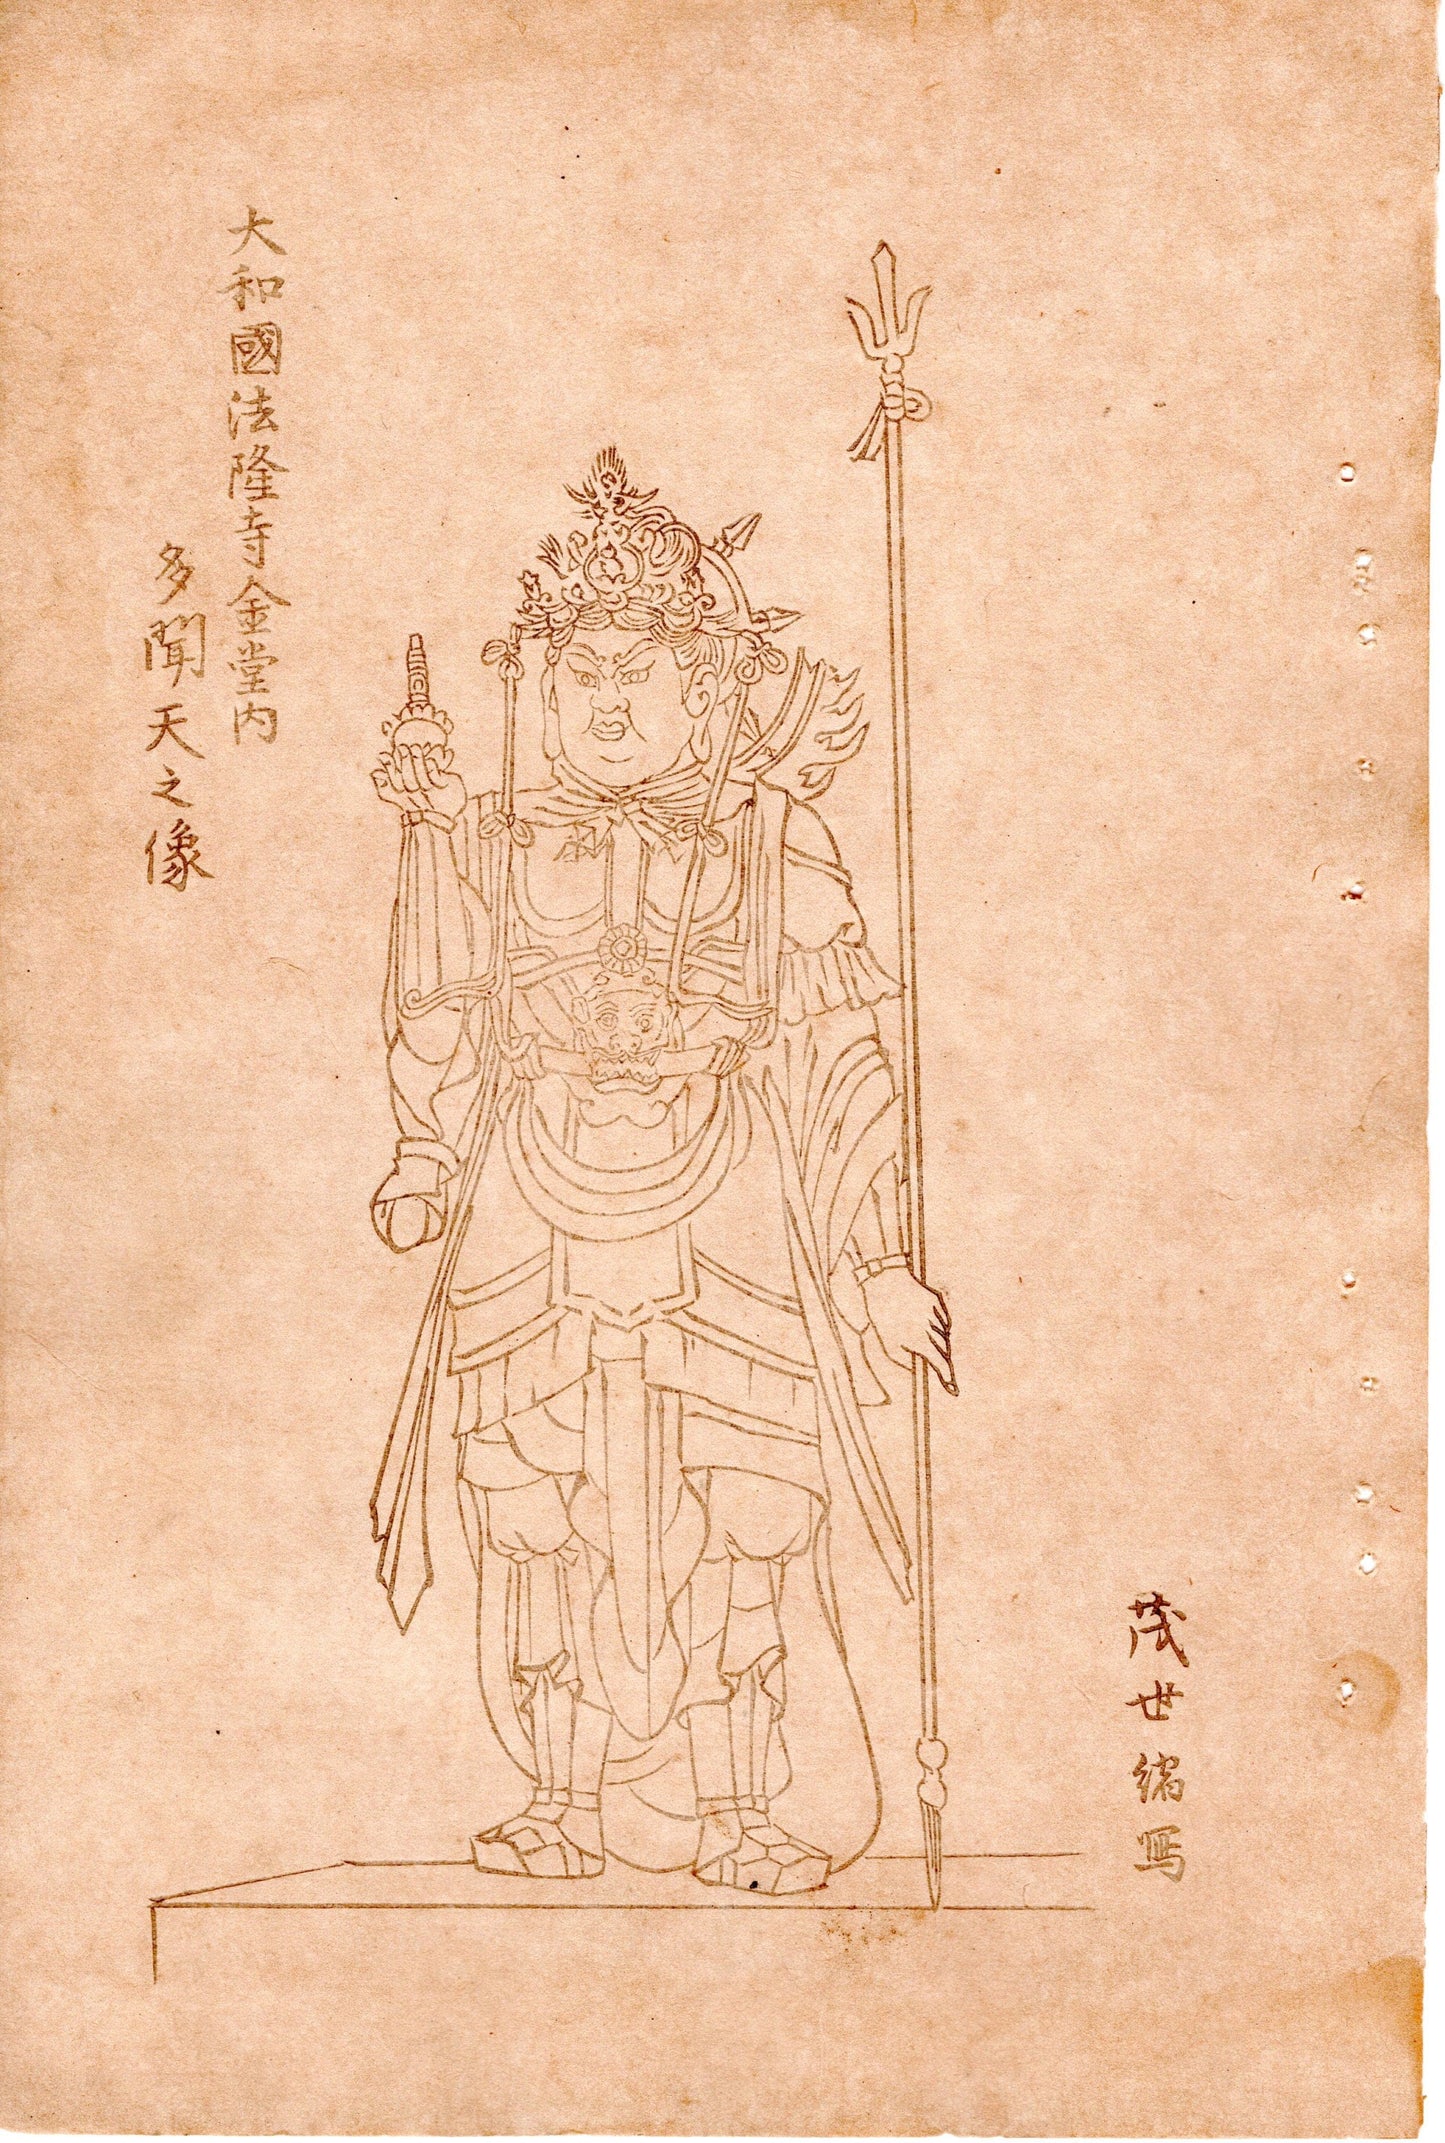 大和國法隆寺金堂内
多聞天之像
茂世縮寫